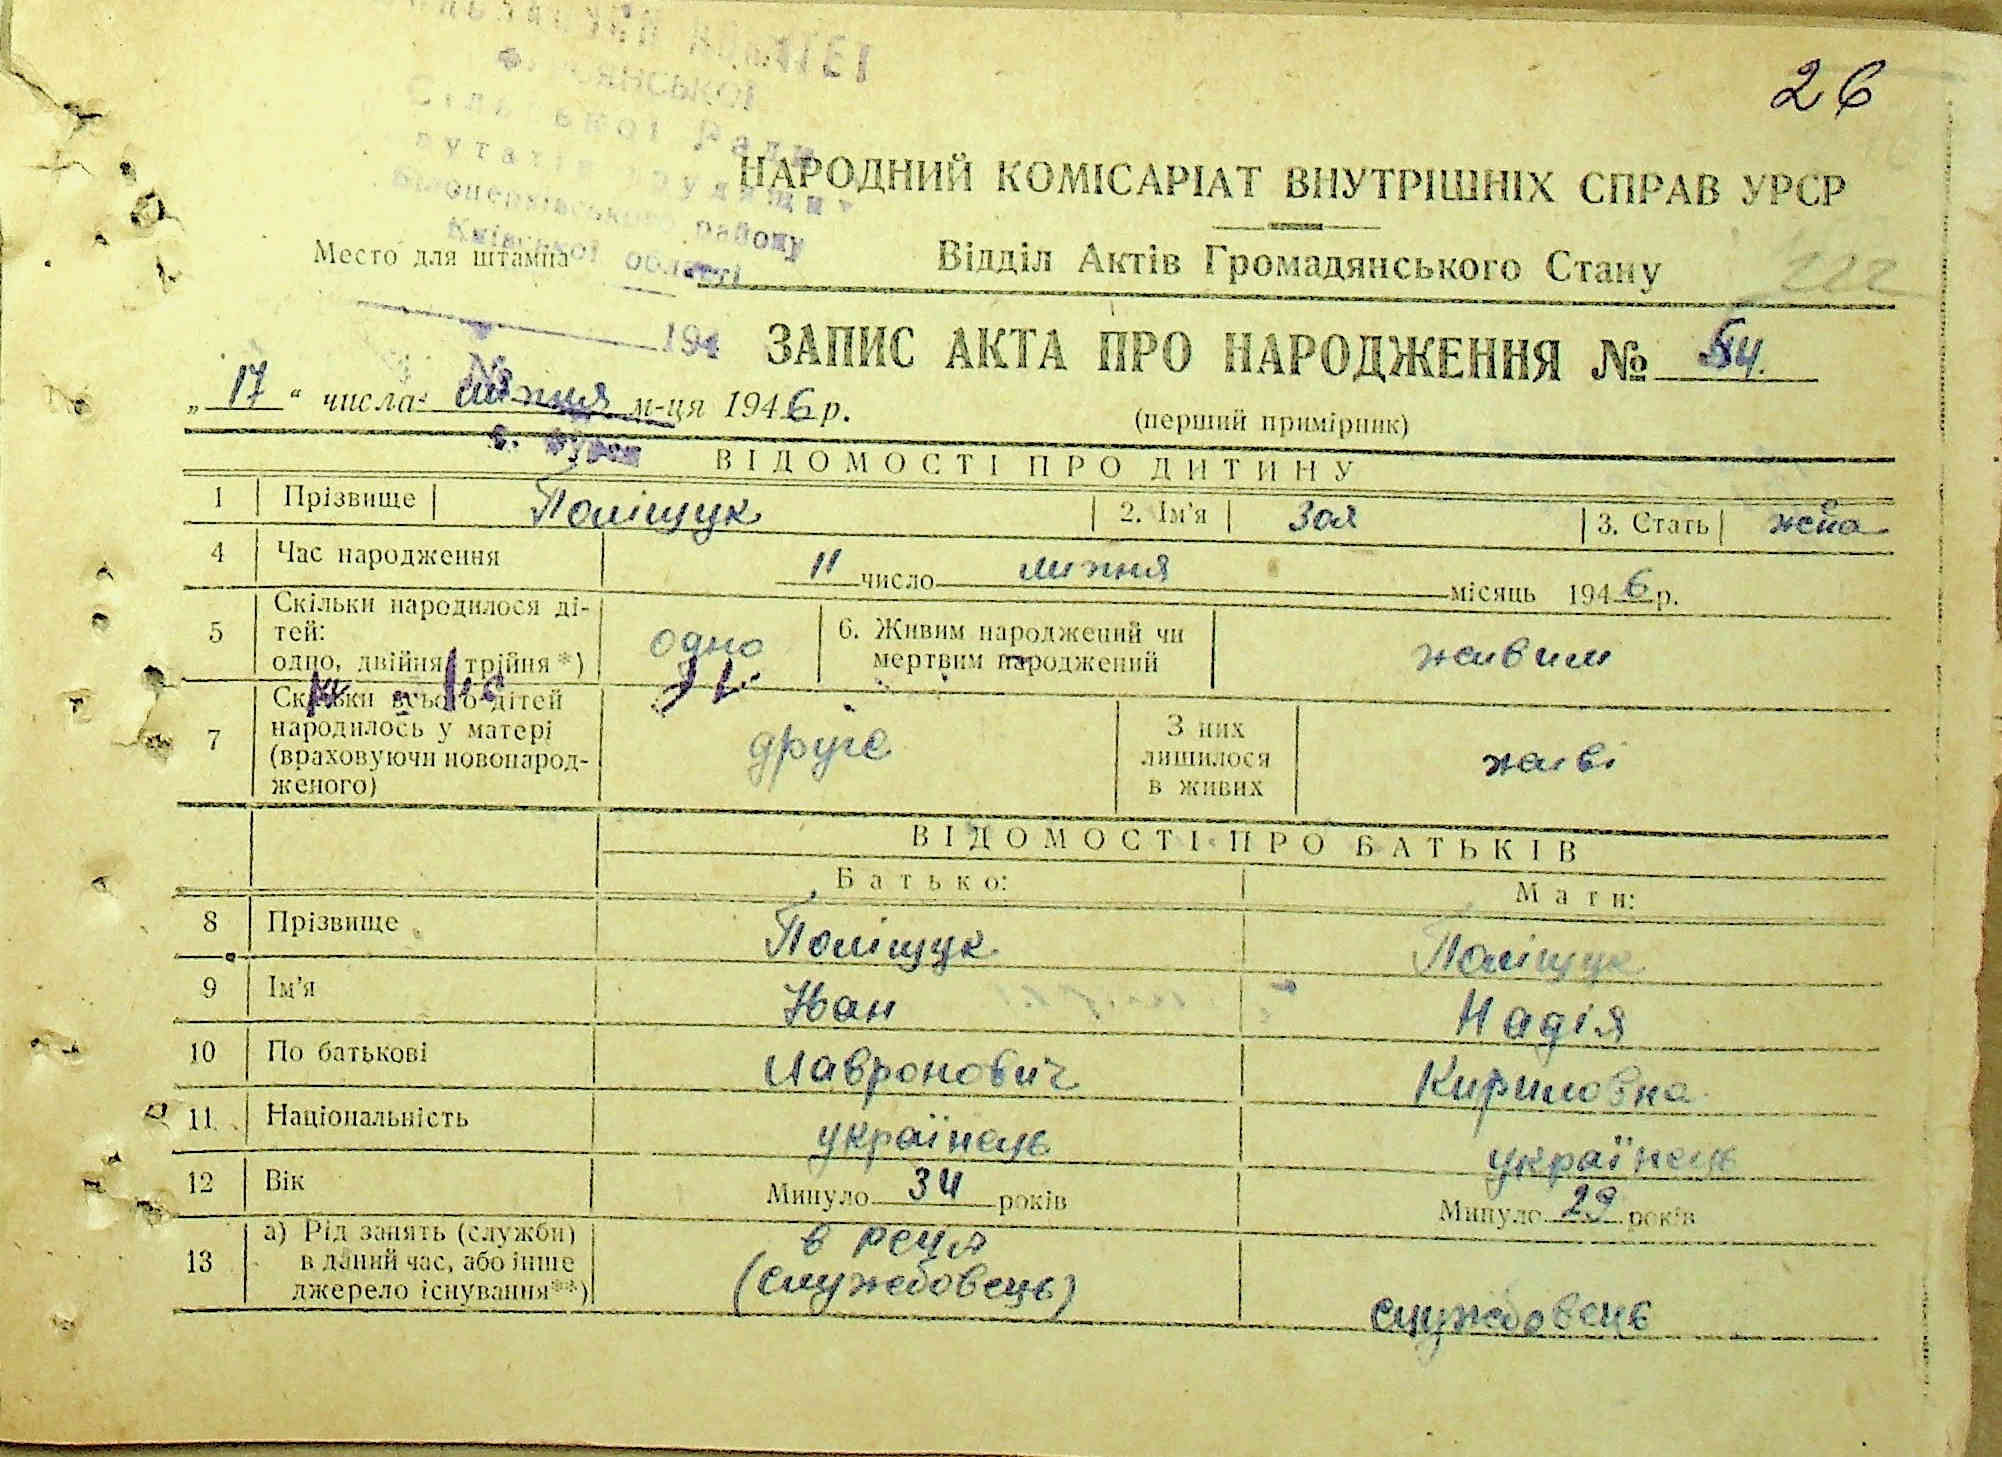 26
НАРОДНИЙ КОМІСАРІАТ ВНУТРІШНІХ СПРАВ УРСР
Сіл Ради
району
Київської області
Место для штампа
Відділ Актів Громадянського Стану
222
194
ЗАПИС АКТА ПРО НАРОДЖЕННЯ № 54.
„17“ числа липня м-ця 1946 р.
(перший примірник)
с. Фурси
ВІДОМОСТІ ПРО ДИТИНУ
1 Прізвище Поліщук 2. Ім'я Зоя 3. Стать жена
4 Час народження 11 число липня місяць 1946 р.
5 Скільки народилося ді-
тей:
одно, двійня, трійня*) одно 6. Живим народжений чи
мертвим народжений живим
7 Скільки всього дітей
народилось у матері
(враховуючи новонарод-
женого) друге З них
лишилося
в живих живі
ВІДОМОСТІ ПРО БАТЬКІВ
Батько: Мати:
8 Прізвище Поліщук Поліщук
9 Ім'я Иван Надія
10 По батькові Лавронович Кириловна
11 Національність українець українець
12 Вік Минуло 34 років Минуло 29 років
13 а) Рід занять (служби)
в даний час, або інше
джерело існування**) в
(службовець) службовець